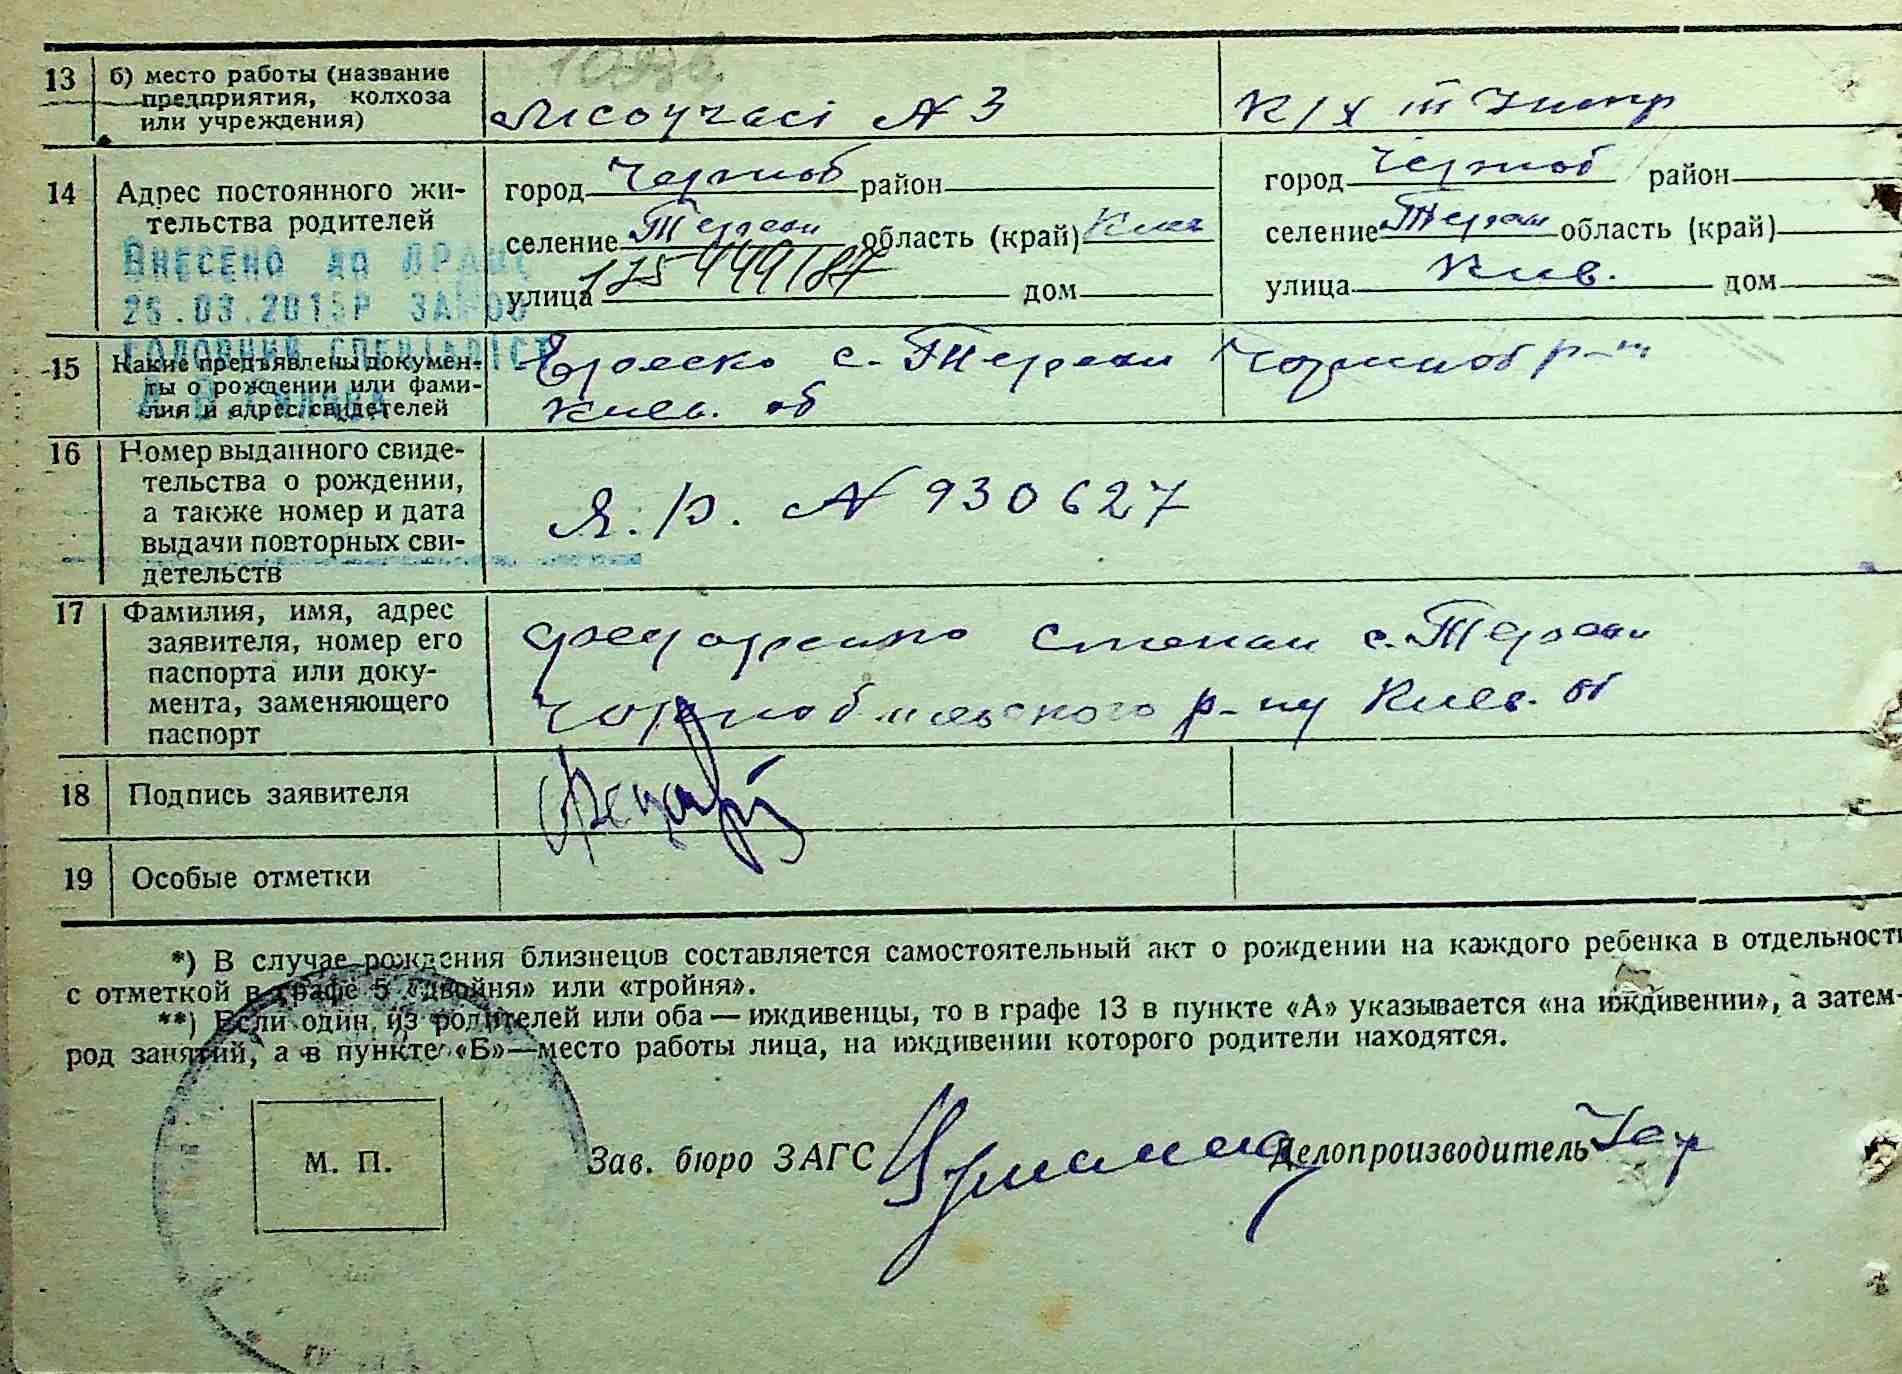 13 б) место работы (название
предприятия, колхоза
или учреждения)
Лісоучасі N 3
к/х
14 Адрес постоянного жи-
тельства родителей
город Черноб район
город Черноб район
селение область (край) Киев
селение область (край)
улица дом
улица Киев. дом
Внесено до ДРАЦС
26.03.2015р
головний спеціаліст
15 Какие предъявлены докумен-
ты о рождении или фами-
лия и адрес свидетелей
с. Чорнноб р-н
Киев. об
16 Номер выданного свиде-
тельства о рождении,
а также номер и дата
выдачи повторных сви-
детельств
N 930627
17 Фамилия, имя, адрес
заявителя, номер его
паспорта или доку-
мента, заменяющего
паспорт
Федоренко Степан с.
Чорнобильского р-ну Киев. об
18 Подпись заявителя
19 Особые отметки
*) В случае рождения близнецов составляется самостоятельный акт о рождении на каждого ребенка в отдельности
с отметкой в графе 5 «двойня» или «тройня».
**) Если один из родителей или оба — иждивенцы, то в графе 13 в пункте «А» указывается «на иждивении», а затем-
род занятий, а в пункте «Б»—место работы лица, на иждивении которого родители находятся.
М. П.
Зав. бюро ЗАГС Делопроизводитель